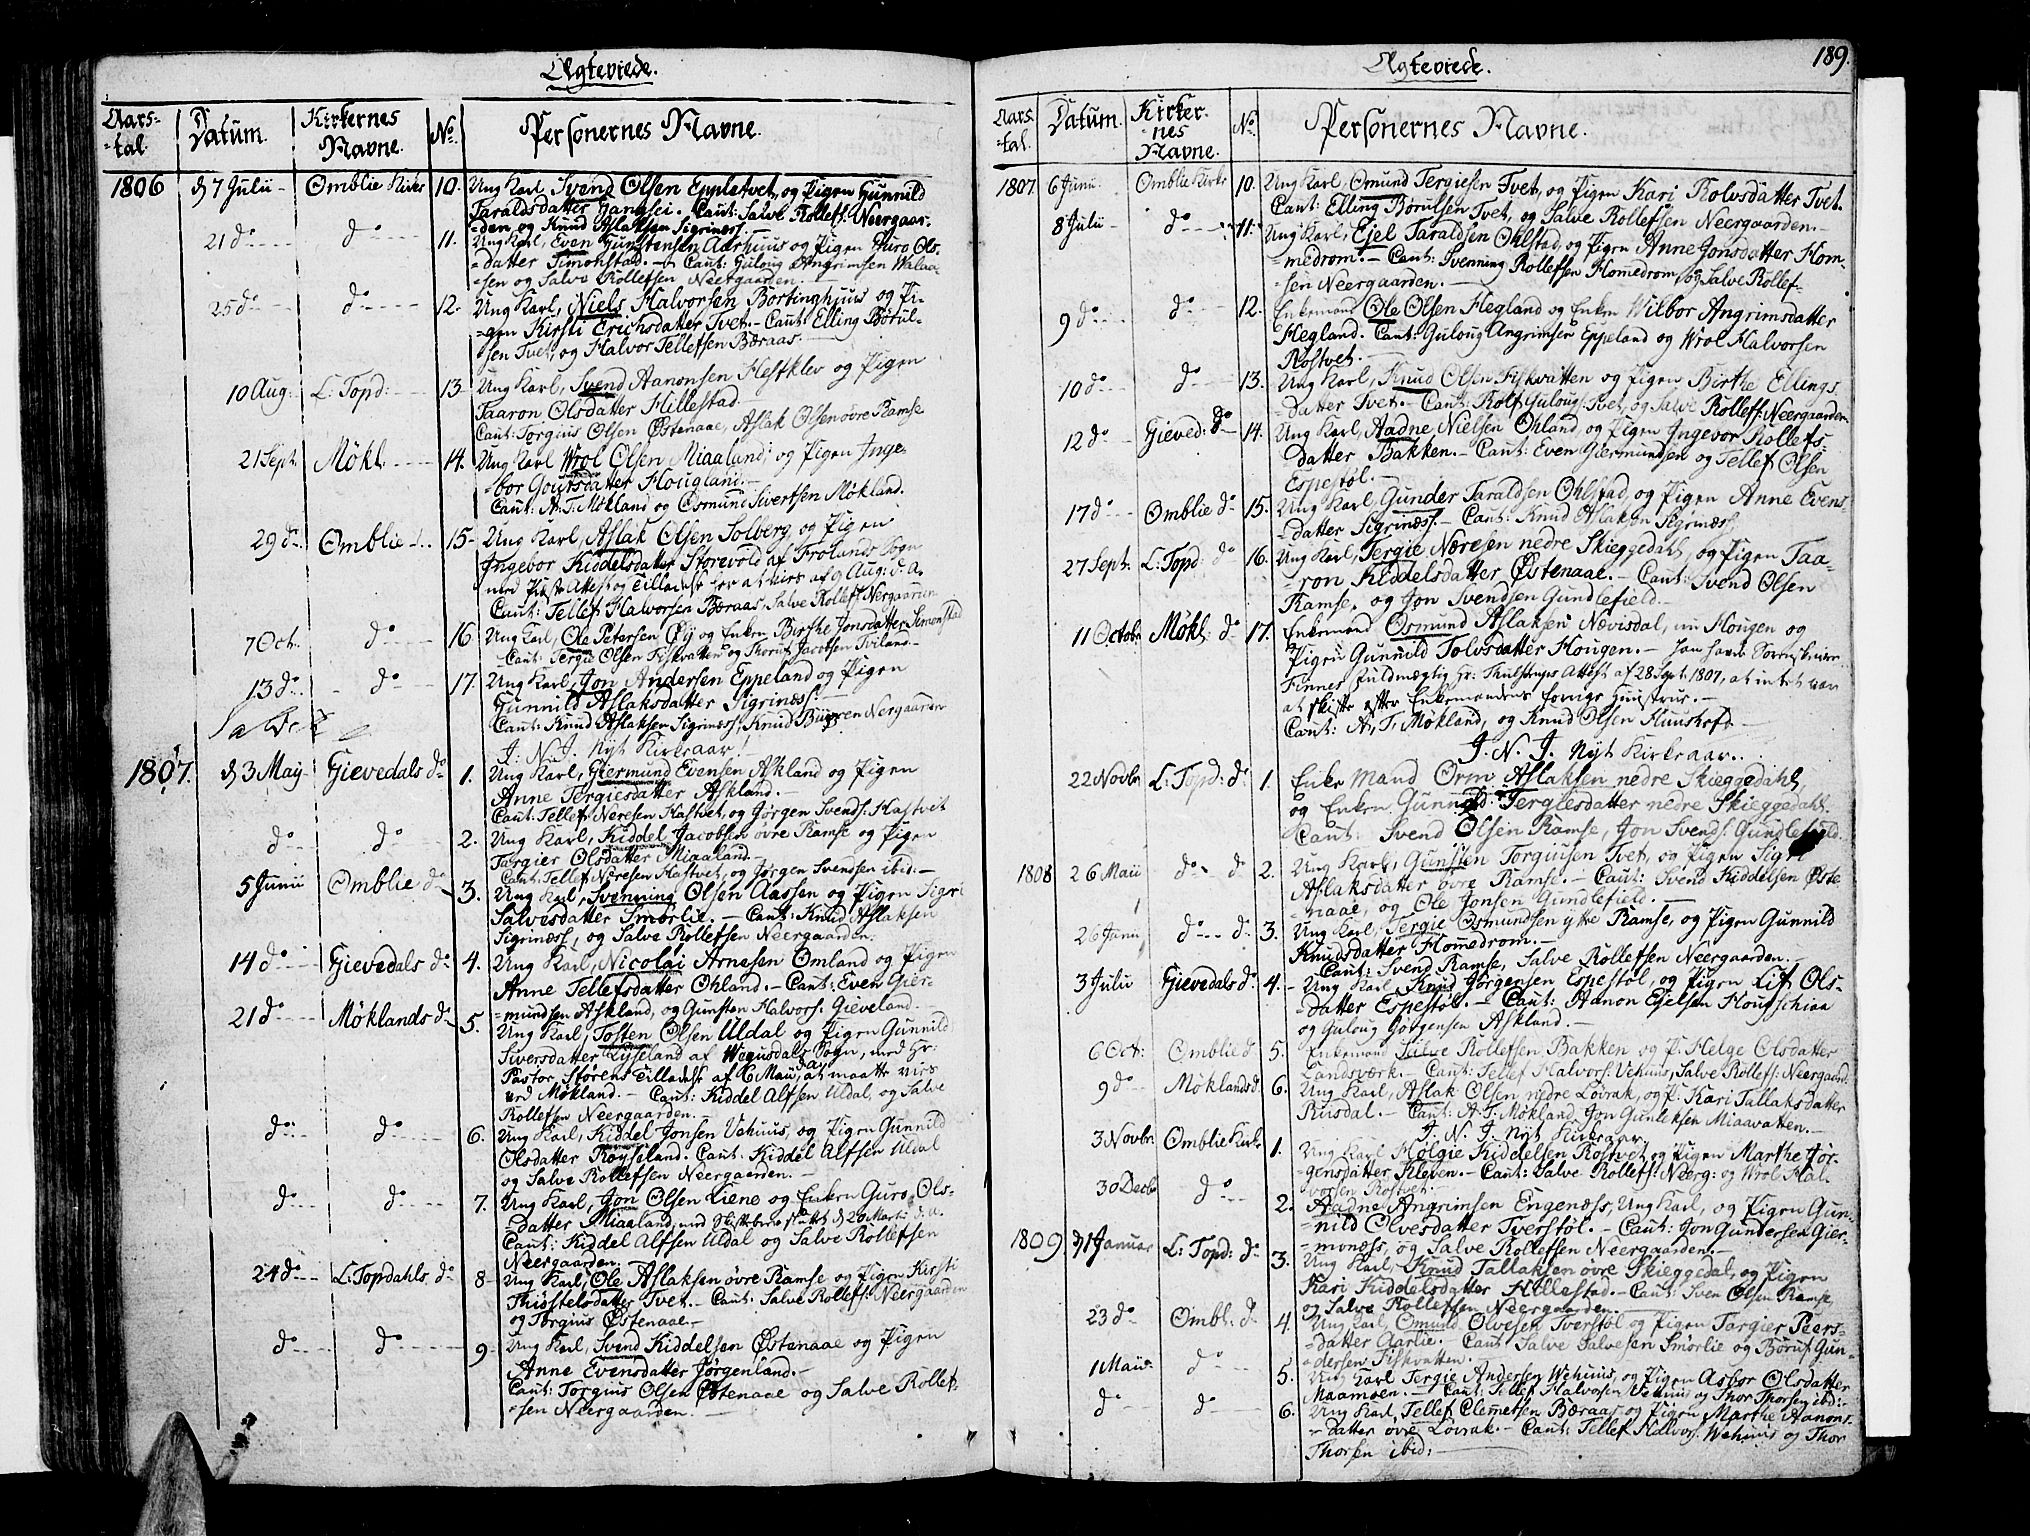 Ægteviede.
Aars-
=tal. Datum. Kirkernes
Navne. No. Personernes Navne.
1806 d 7 Julii - Omblie Kirke 10. Ung Karl, Svend Olsen Eppletvet, og Pigen Gunnild
Taraldsdatter Hangsei. Caut: Salve Rollefs: Neergaar-
=den, og Knud Aslaksen Sigrinæss.
21 do do 11. Ung Karl, Even Gunstensen Aarhuus og Pigen Siiro Ols-
=datter Simonstad. - Caut: Guloug Angrimsen Walaa-
=sen og Salve Rollefsen Neergaarden.
25 do do 12. Ung Karl, Niels Halvorsen Bortinghuus og Pi-
=gen Kirsti Erichsdatter Tvet. - Caut: Elling Børul-
sen Tvet, og Halvor Tellefsen Bæraas.
10 Aug. L: Topd: 13. Ung Karl, Svend Aanonsen Hestklev og Pigen
Taaron Olsdatter Hillestad.
Caut: Torgius Olsen Østenaae, Aslak Olsen øvre Ramse
21 Sept. Møkl. 14. Ung Karl Wrol Olsen Miaaland; og Pigen Inge-
bor Goutsdatter Hougland.
Caut: A. T. Møkland og Osmund Sivertsen Møkland.
29 d. Omblie 15. Ung Karl, Aslak Olsen Solberg og Pigen
Ingebor Kiddelsdatter Storevold af Frolands Sogn
med Præste Attest og Tilladelse her at vies af 9 Aug: d. A.
Caut: Tellef Halvorsen Bæraas, Salve Rollefs: Nergaarden
7 Oct. do 16 Ung Karl, Ole Petersen Øy og Enken Birthe Jonsdatter Simonstad
Caut: Tergie Olsen Fiskvatten og Thoruf Jacobsen Tvilans
13 do do 17. Ung Karl, Jon Andersen Eppeland og Pigen
Gunnild Aslaksdatter Sigrinæss.
Caut: Knud Aslaksen Sigrinæss, Knud Nergaarden
J. N. J. Nyt Kirkeaar!
1807. d 3 May Gievedals do 1. Ung Karl, Giermund Evensen Askland og Pigen
Anne Tergiesdatter Askland.
Caut. Tellef Neresen Hastvet, og Jørgen Svends: Hastveit
do do 2. Ung Karl, Kiddel Jacobsen øvre Ramse og Pigen
Targier Olsdatter Miaaland.
Caut. Tellef Neresen Hastvet, og Jørgen Svenssen ibid. -
5 Junii Omblie do 3. Ung Karl, Svenning Olsen Aassen og Pigen Sigri
Salvesdatter Smørlie. - Caut: Knud Aslaksen
Sigrinæss, og Salve Rollefsen Neergaarden.
14 do Gievedals do 4. Ung Karl, Nicolai Arnesen Omland og Pigen
Anne Tellefsdatter Ohland. - Caut: Even Gier-
=mundsen Askland, og Gunsten Halvors: Gieveland.
21 do Møklands do 5. Ung Karl, Tosten Olsen Uldal og Pigen Gunnild
Siversdatter Lyseland af Wegusdals Sogn, med Hr:
Pastor Størens Tilladelse af 16 Maii, at maatte vies
ved Møkland. - Caut: Kiddel Alfsen Uldal, og Salve
Rollefsen Neergaarden.
do do 6. Ung Karl, Kiddel Jonsen Vehuus, og Pigen Gunnild
Olsdatter Røyseland. Caut: Kiddel Alfsen Uldal
og Salve Rollefsen Neergaarden. -
do do 7. Ung Karl, Jon Olsen Liene og Enken Guro Ols-
=datter Miaaland, med Skiftebrev sluttet d 20 Marti d. a.
Caut: Kiddel Alfsen Uldal og Salve Rollefsen
Neergaarden.
24 do L: Topdahls do 8 Ung Karl, Ole Aslaksen øvre Ramse og Pigen Kirsti
Thiøstelsdatter Tvet. - Caut: Salve Rollefs: Neergaarden
og Torgius Østenaae.
do do 9 Ung Karl, Svend Kiddelsen Østenaae og Pigen
Anne Evensdatter Jørgenland.
Caut: Torgius Olsen Østenaae og Salve Rollef-
=sen Neergaarden.
Ægteviede. 189.
Aars-
tal. Datum. Kirker-
nes
Navne. No. Personernes Navne.
1807. 6 Junii Omblie Kirke 10. Ung Karl, Omund Tergiesen Tvet, og Pigen Kari Rolvsdatter Tvet.
Caut: Elling Børulsen Tvet, og Salve Rollefsen Neergaarden. -
8 Julii do 11. Ung Karl, Ejel Taraldsen Ohlstad, og Pigen Anne Jonsdatter Hom-
=medrom. - Caut: Svenning Rollefsen Homedrom, og Salve Rollef-
=sen Neergaarden. -
9 do do 12. Enkemand Ole Olsen Hegland og Enken Wilbor Angrimsdatter
Hegland. Caut: Guloug Angrimsen Eppeland og Wrol Halvorsen
Rostvet.
10 do do 13. Ung Karl, Knud Olsen Fiskvatten og Pigen Birthe Ellings
=datter Tvet. - Caut: Rolf Guloug: Tvet, og Salve Rollefs: Neergaarden
12 do Gieved: do 14. Ung Karl, Aadne Nielsen Ohland, og Pigen Ingebor Rollefs
=datter Bakken. - Caut: Even Giermundsen og Tellef Olsen
Espestøl. -
17 do Omblie do 15. Ung Karl Gunder Taraldsen Ohlstad, og Pigen Anne Evens
=datter Sigrinæss. - Caut: Knud Aslaksen Sigrinæss
27 Sept. L: Topd: do 16. Ung Karl, Tergie Næresen nedre Skieggedahl, og Pigen Taa-
ron Kiddelsdatter Østenaae. - Caut: Svend Olsen
Ramse, og Jon Svendsen Gundlefield.
11 Octobr Møkl: do 17. Enkemand Osmund Aslaksen Nævisdal, nu Hougen og
Pigen Gunnild Tolvsdatter Hougen. - Han havde Sorenskriver
Finnes fuldmægtig Hr: Thulstrups Attest af 28 Sept. 1807, at intet var
at skifte efter Enkemandens forrige Huustrue. -
Caut: A. T. Møkland, og Knud Olsen Huushofd. -
J. N. J. Nyt Kirkeaar..
22 Novbr L: Topd: do 1. Enke Mand Orm Aslaksen nedre Skieggedahl,
og Enken Gunnild Tergiesdatter nedre Skieggedahl.
Caut: Svend Olsen Ramse, Jon Svends: Gundlefield.
1808 26 Maii do do 2. Ung Karl, Gunsten Torguusen Tvet, og Pigen Sigri
Aslaksdatter øvre Ramse. - Caut: Svend Kiddelsen Øste
=naae, og Ole Jonsen Gundlefield. -
26 Junii do do 3. Ung Karl, Tergie Osmundsen ytte Ramse, og Pigen Gunnild
Knudsdatter Homedrom. -
Caut: Svend Ramse, Salve Rollefsen Neergaarden. -
3 Julii Gievedals do 4. Ung Karl, Knud Jørgensen Espestøl, og Pigen Lisf Ols-
=datter Espestøl. - Caut: Aanon Ejelsen Housschiaa
og Guloug Jørgensen Askland. -
6 Oct: Omblie do 5. Enkemand Salve Rollefsen Bakken og P. Helge Olsdatter
Landsværk. - Caut: Tellef Halvors: Vehuus, Salve Rollefs: Neergaard.
9 do Møklands do 6. Ung Karl, Aslak Olsen nedre Løvrak, og P. Kari Tallaksdatter
Riisdal. - Caut: A. T. Møkland, Jon Gunleksen Miaavatten. -
J. N. J. Nyt Kirkeaar.
3 Novbr Omblie Kirke 1. Ung Karl Holgie Kiddelsen Rostvet og Pigen Marthe Jør-
=gensdatter Kleven. - Caut: Salve Rollefs: Neerg: og Wrol Hal-
vorsen Rostvet.
30 Decbr do 2. Aadne Angrimsen Engenæss, Ung Karl, og Pigen Gun-
=nild Olvesdatter Tverstøl. - Caut: Jon Gundersen Gier-
=monæss, og Salve Rollefsen Neergaarden. -
1809 d 1 Januar L: Topd: do 3. Ung Karl, Knud Tallaksen øvre Skieggedal, og Pigen
Kari Kiddelsdatter Hillestad. - Caut: Sven Olsen Ramse,
og Salve Rollefsen Neergaarden.
23 do Ombl: do 4. Ung Karl, Omund Olvesen Tverstøl og Pigen Targier Peers-
=datter Aarlie. - Caut Salve Salvesen Smørlie og Børuf Gun-
=dersen Fiskvatten.
1 Maii do 5. Ung Karl Tergie Andersen Wehuus, og Pigen Asbor Olsdatter
Maamoen. - Caut: Tellef Halvorsen Vehuus og Thor Thorsen ibid:
do do 6. Ung Karl, Tellef Clemetsen Bæraas og Pigen Marthe Aanons-
=datter øvre Løvrak. - Caut: Tellef Halvors: Wehuus og Thor
Thorsen ibid: -